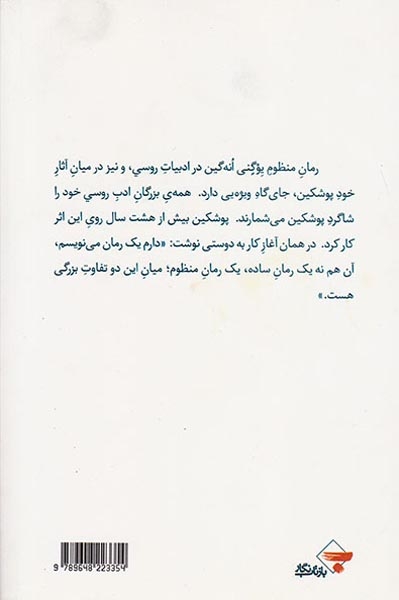 رمانِ منظومِ یِوْگِنی اُنه‌گین در ادبیاتِ روسي، و نیز در میانِ آثارِ
خودِ پوشکین، جای‌گاهِ ویژه‌یی دارد. همه‌یِ بزرگانِ ادبِ روسي خود را
شاگردِ پوشکین می‌شمارند. پوشکین بیش از هشت سال رویِ این اثر
کار کرد. در همان آغازِ کار به دوستی نوشت: «دارم یک رمان می‌نویسم،
آن هم نه یک رمانِ ساده، یک رمانِ منظوم؛ میانِ این دو تفاوتِ بزرگی
هست.»
9 789648 223354
بازتاب‌نگار